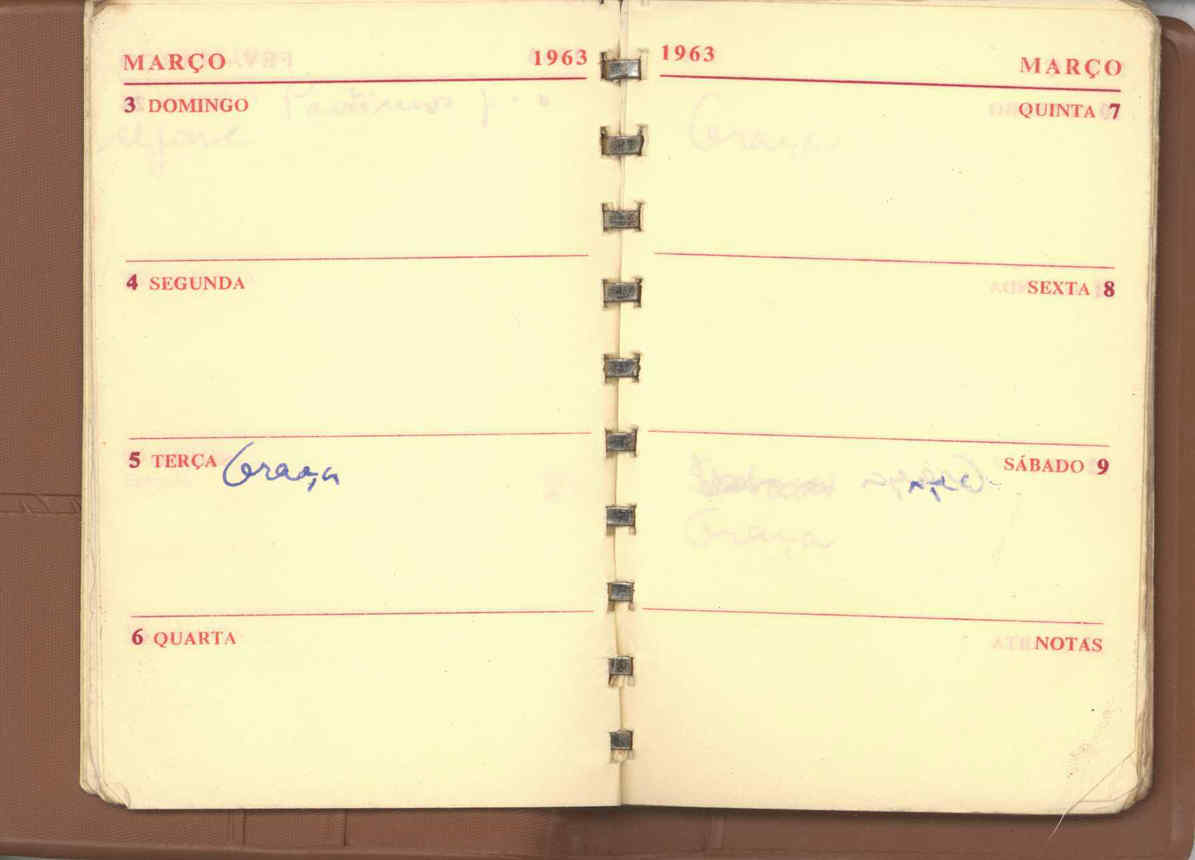 MARÇO 1963
3 DOMINGO
4 SEGUNDA
5 TERÇA Graça
6 QUARTA
1963 MARÇO
QUINTA 7
SEXTA 8
SÁBADO 9
NOTAS